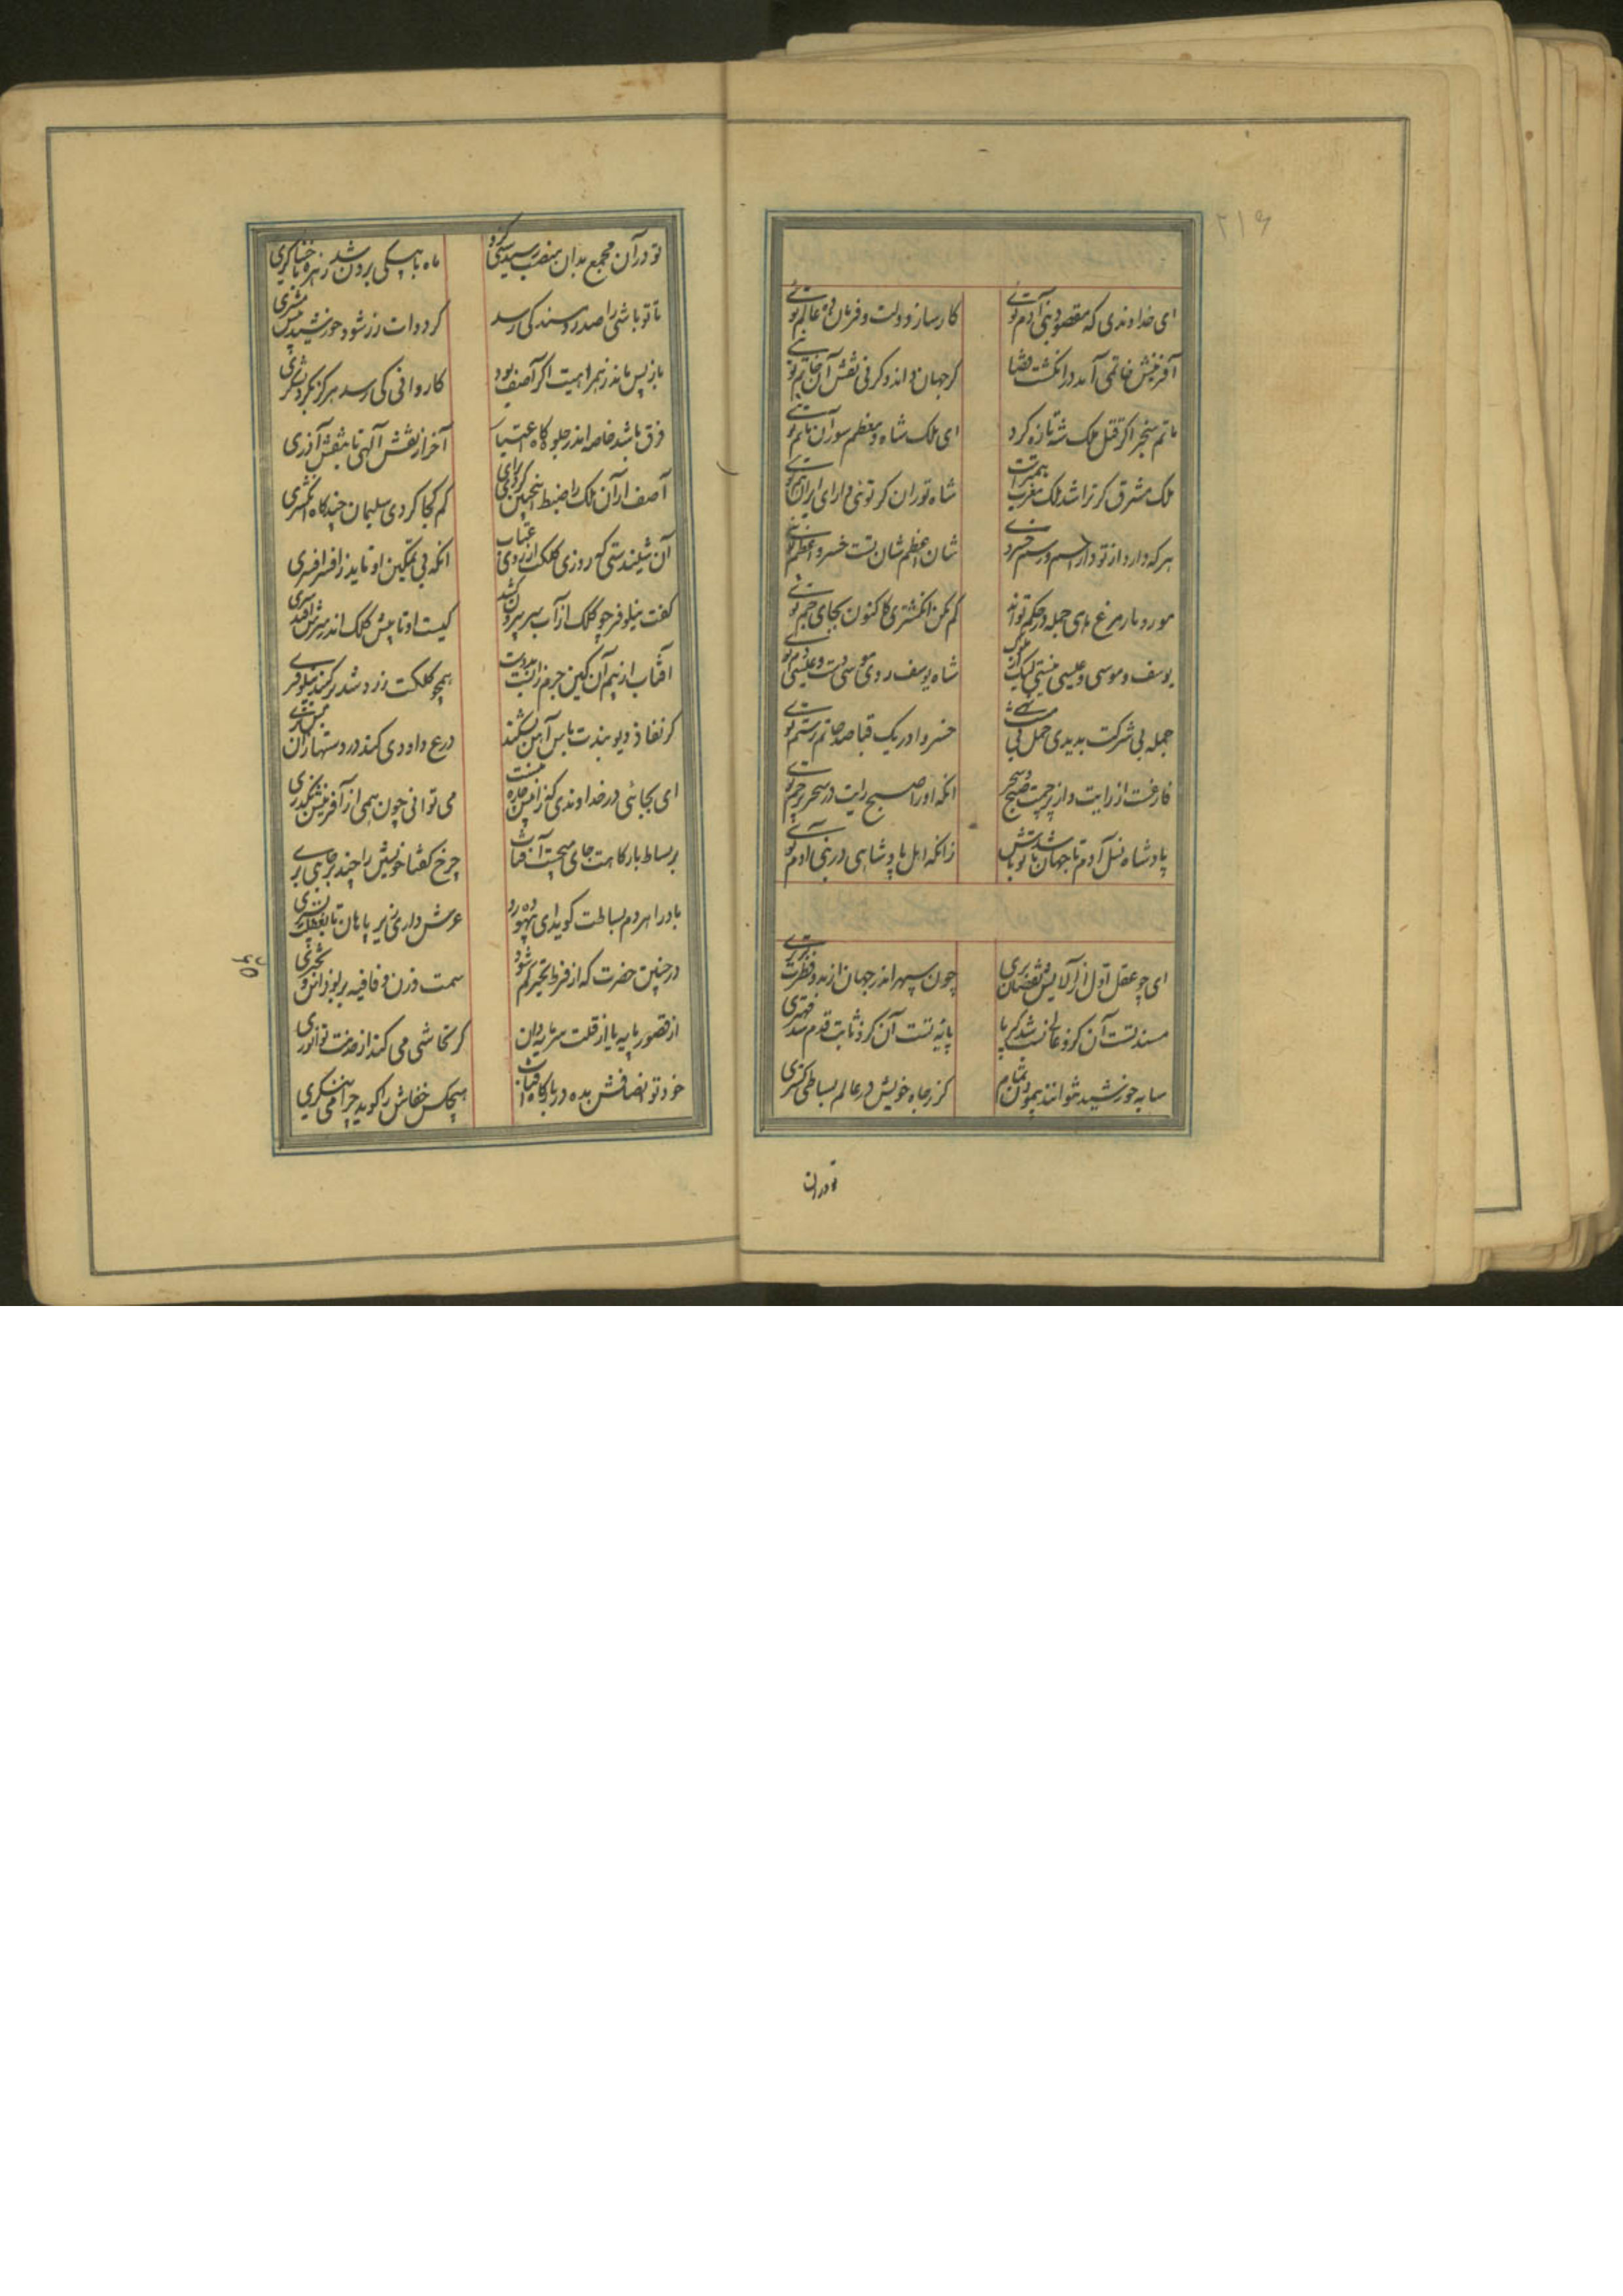 ۲۱۹
ای خداوندی که مقصود بنی آدم توئی کارساز دولت و فرمان ده عالم توئی
آفرینش خاتمی آمد در انگشت قضا گر جهان داند وگر نی نقش آن خاتم توئی
ماتم سنجر اگر قتل ملک شه تازه کرد ای ملک شاه معظم سور آن ماتم توئی
ملک مشرق گر ترا شد ملک مغرب هم تراست شاه توران گر توئی دارای ایران هم توئی
هرکه دارد از تو دارد اسم و رسم خسروی شان اعظم شان تست خسرو اعظم توئی
مور و مار و مرغ و ماهی جمله در حکم تواند گم مکن انگشتری کاکنون بجای جم توئی
یوسف و موسی و عیسی نیستی لیک از ملوک شاه یوسف روی موسی دست و عیسی دم توئی
جمله بی شرکت بدیدی حمل بی خسروا در یک قبا صد حاتم و رستم توئی
فارغست از رایت و از پرچمت صبح و سحر آنکه او را صبح رایت در سحر پرچم توئی
پادشاه نسل آدم تا جهان باشد تو باش زانکه اهل پادشاهی در بنی آدم توئی
ای چو عقل اول از آلایش نقصان بری چون سپهر اندر جهان از بدو فطرت برتری
مسند تست آن کزو عالی نسب شد کبریا پایه تست آن کزو ثابت قدم شد مهتری
سایه خورشید نتوانند پیمودن تمام گر ز جاه خویش در عالم بساطی گستری
تو در آن
تو در آن مجمع بدان منصب رسیدستی کزو ماه با پیکی برون شد زهره با خنیاگری
تا تو باشی مشتری را صدر و مسند کی رسد گر دوات زر شود خورشید پیش مشتری
باز پس ماند ز همراهیت اگر آصف بود کاروانی کی رسد هرگز بگرد لشکری
فرق باشد خاصه اندر جلوه گاه اعتبار آخر از نقش الهی تا بنقش آذری
آصف ار آن ملک را ضبط آنچنین کردی برای گم کجا کردی سلیمان چندگاه انگشتری
آن شنیدستی که روزی کلکت از روی عتاب آنکه بی تمکین او ناید ز افسر افسری
گفت نیلوفر چو کلک از آب سر بیرون کشد کیست او تا پیش کلک اندر سرش آید سری
آفتاب از بیم آن کین جرم را نسبت بدوست همچو کلکت زرد شد بر گنبد نیلوفری
گر نفاذ دیو بندت باس آهن بشکند درع داودی کند در دستها
ای بجائی در خداوندی کزان بیش جاه نیست می توانی چون همی از آفرینش بگذری
بر بساط بارگاهت جای می جست آفتاب چرخ گفتا خویشتن را چند بر جائی بری
باد را هر دم بساطت گوید ای بیهوده رو عرش داری زیر پا هان تا بغفلت نسپری
در چنین حضرت که از فرط تحیر گم شود سمت وزن و قافیه بر بونواس و بحتری
از قصور پایه یا از قلت سرمایه دان گر تحاشی می کند از خدمت تو انوری
خود تو انصافش بده در بارگاه آفتاب هیچکس خفاش را گوید چرا می ننگری